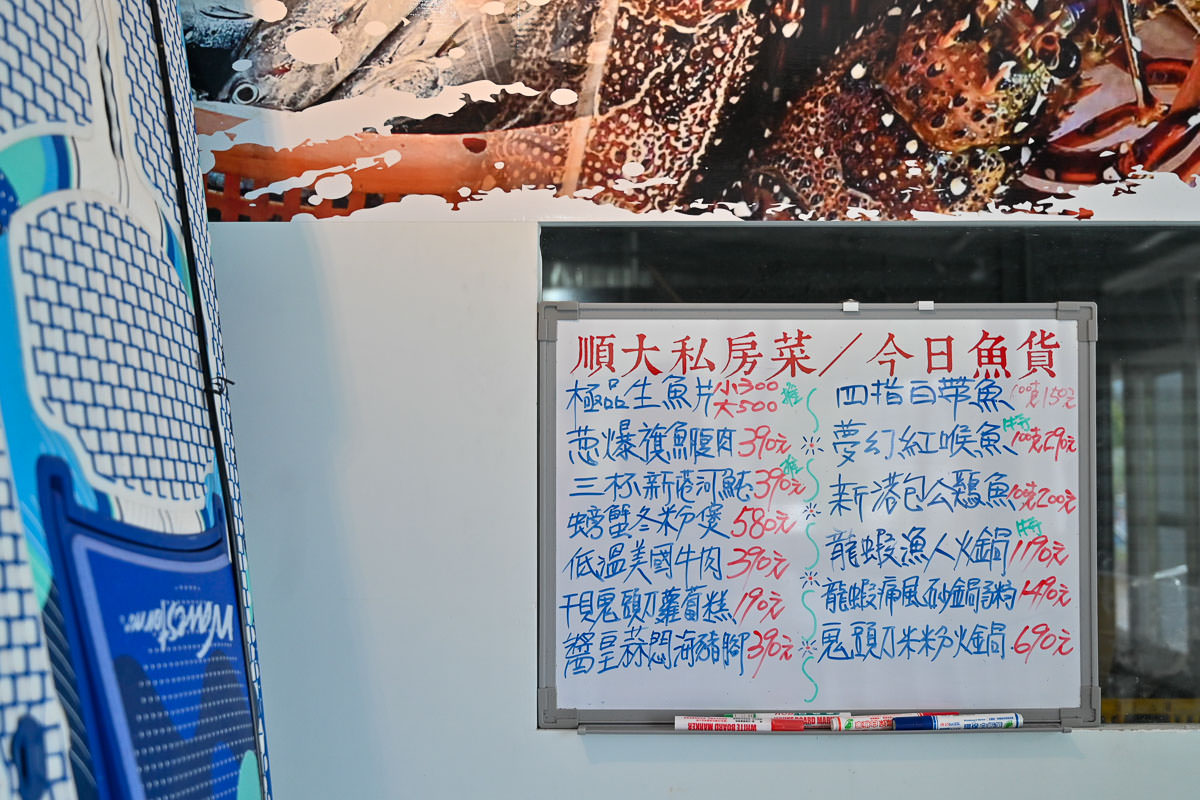 順大私房菜／今日魚貨
極品生魚片 小300 大500 推
蔥爆旗魚腹肉 390元
三杯新港河魨 390元 推
螃蟹冬粉煲 580元
低溫美國牛肉 390元
干貝鬼頭刀蘿蔔糕 190元
醬皇蒜悶海豬腳 390元
四指白帶魚 100克150元
夢幻紅喉魚 特 100克290元
新港包公鷄魚 100克200元
龍蝦漁人火鍋 特 1190元
龍蝦痛風砂鍋粥 1490元
鬼頭刀米粉火鍋 690元
WHITE BOARD MARKER
WaveStorm